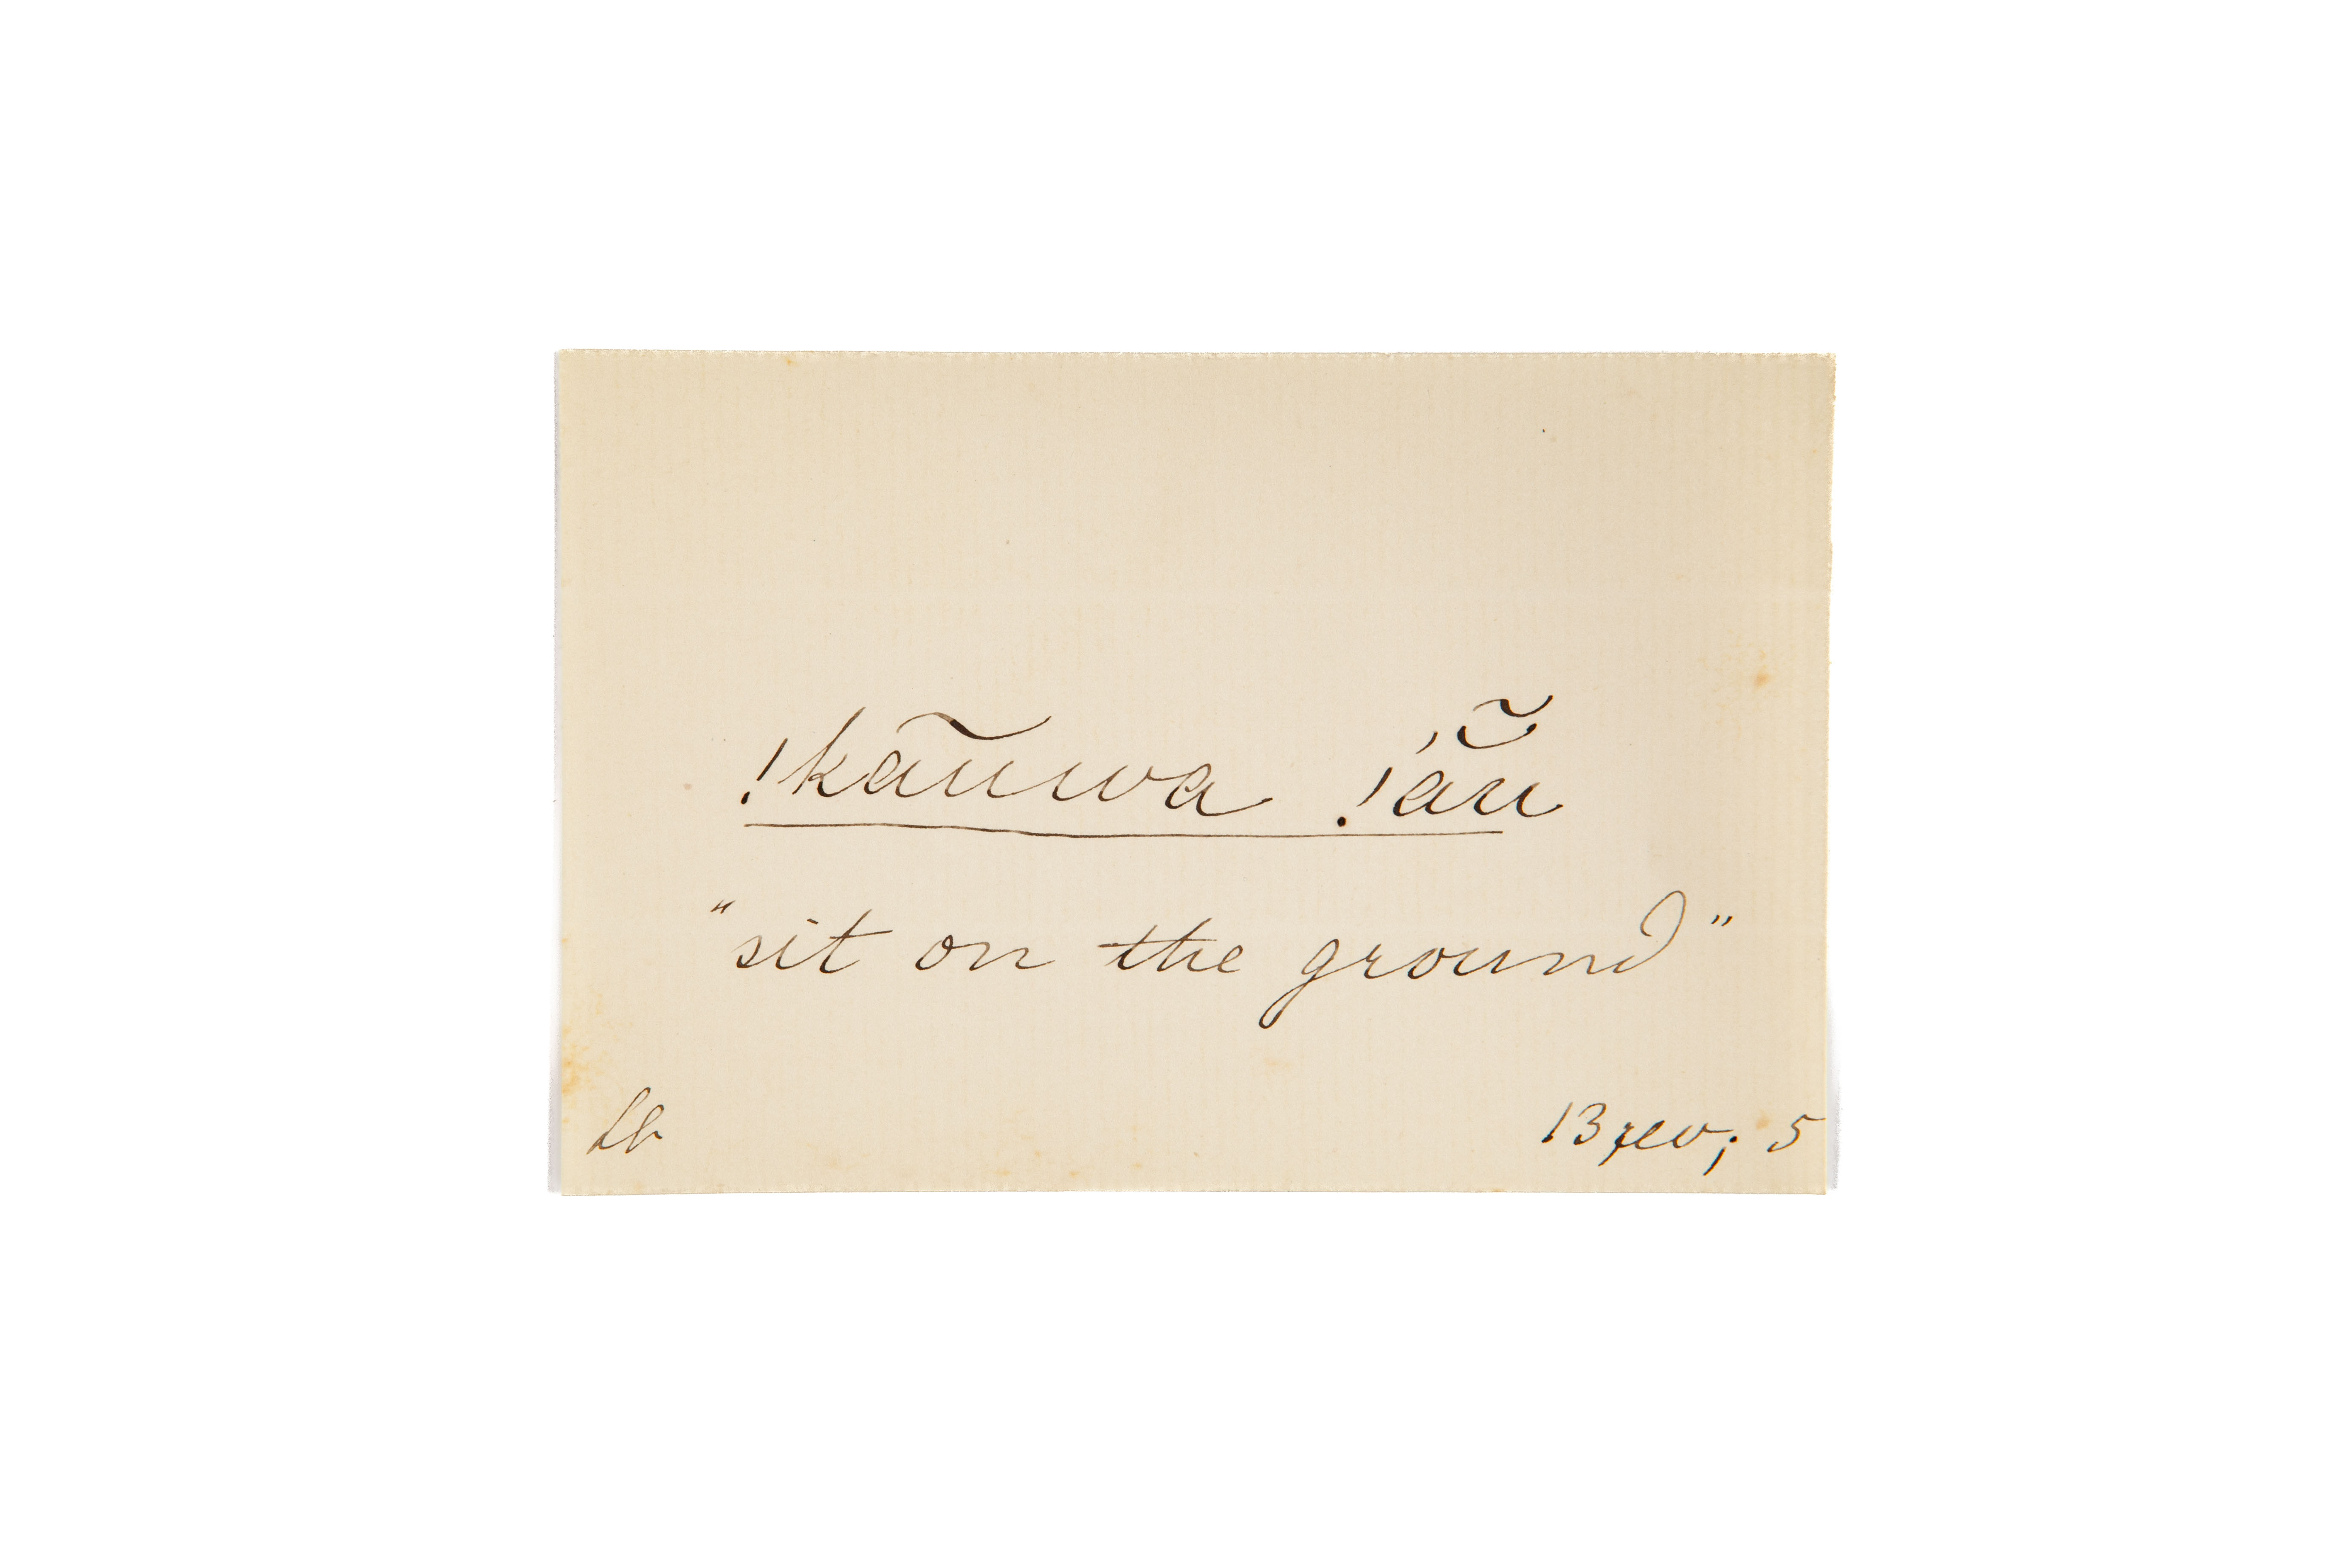 !kãuwa !ắ̃u
"sit on the ground"
Lb 13 rev; 5